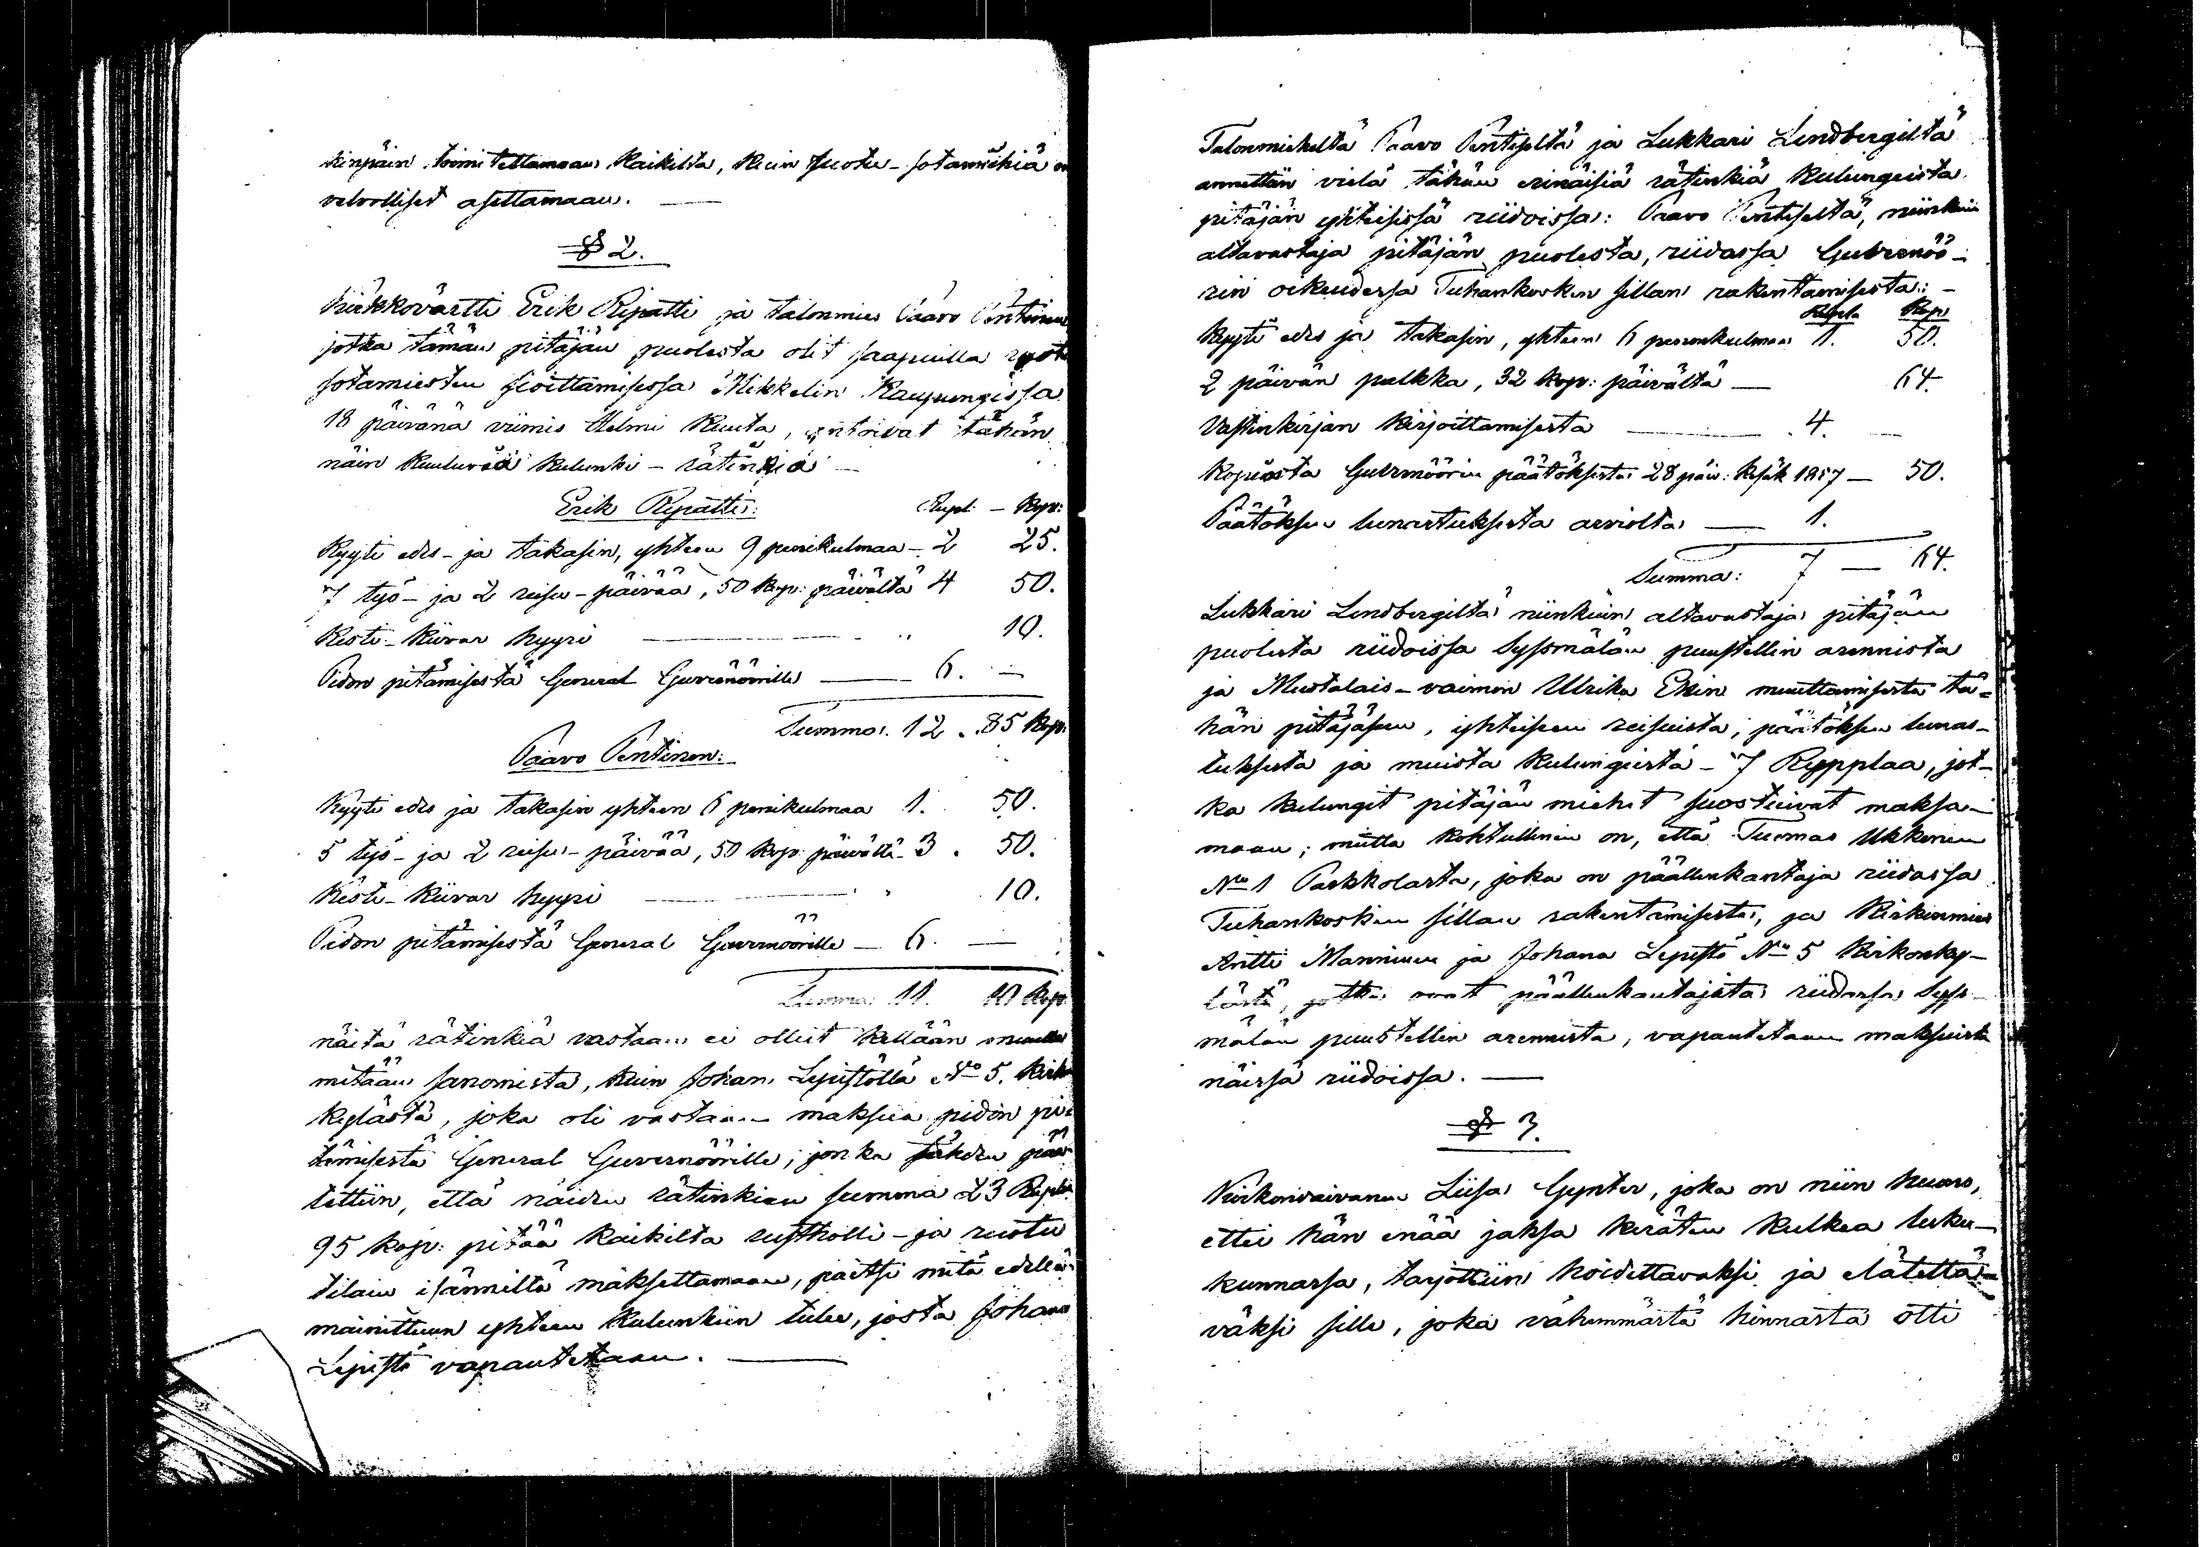 kinpäin toimitettamaan kaikilta, kuin Ruotu-sotamiehiä on
velvolliset asettamaan. —
§ 2.
Kirkkovärtti Erik Ripatti ja talonmies Paavo Pentinen
jotka tämän pitäjän puolesta olit saapuilla ruotu
sotamiesten sioittamisessa Mikkelin Kaupungissa
18 päivänä viimis Helmi kuuta, antoivat tähän
näin kuuluvia kulunki-rätinkiä —
Erik Ripatti: Rupl: — Kop:
Kyyti edes- ja takasin, yhteen 9 penikulmaa - 2 25.
7 työ- ja 2 reisu-päivää, 50 kop: päivältä 4 50.
Kesti-kiivar hyyri — " 10.
Pidon pitämisestä General Guvernöörille — 6. —
Summa. 12. 85 kop.
Paavo Pentinen:
Kyyti edes ja takasin yhteen 6 penikulmaa 1. 50.
5 työ- ja 2 reisu-päivää, 50 kop: päivältä - 3. 50.
Kesti-kiivar hyyri — " 10.
Pidon pitämisestä General Guvernöörille — 6. —
Summa 11. 10 kop
näitä rätinkiä vastaan ei ollut kellään muulla
mitään sanomista, kuin Johan Lepistöllä No 5. Kirkon
kylästä, joka oli vastaan maksua pidon pi-
tämisestä General Guvernöörille; jonka jähden pää-
tettiin, että näiden rätinkien summa 23 Rupla
95 kop: pitää kaikilta rustholli- ja ruotu
tilain isänniltä maksettamaan, paitsi mitä edellä-
mainittuun yhteen kulunkiin tulee, josta Johan
Lepistö vapautetaan. —
Talonmieheltä Paavo Pentiseltä ja Lukkari Lindbergiltä
annettiin vielä tähän erinäisiä rätinkiä kulungeista
pitäjän yhteisissä riidoissa: Paavo Pentiseltä, niinkuin
altavastaja pitäjän puolesta, riidassa Guvernöö-
rin oikeudessa Tuhankosken sillan rakentamisesta: —
Rupla Kop:
Kyyti edes ja takasin, yhteen 6 penenkulmaa 1. 50.
2 päivän palkka, 32 kop: päivältä — 64.
Vastinkirjan kirjoittamisesta — 4. —
Kopiosta Guvernöörin päätöksestä 28 päiv: Kesäk 1857 — 50.
Päätöksen lunastuksesta arviolta — 1.
Summa: 7 — 64.
Lukkari Lindbergiltä niinkuin altavastaja pitäjän
puolesta riidoissa Syssmälän puustellin arennista
ja Mustalais-vaimon Ulrika Ekin muuttamisesta tä-
hän pitäjäsen, yhteisen reisuista, päätöksen lunas-
tuksesta ja muista kulungista - 7 Rypplaa, jot-
ka kulungit pitäjän miehet suostuivat maksa-
maan; mutta kohtullinen on, että Tuomas Ukkonen
No 1 Parkkolasta, joka on päällenkantaja riidassa
Tuhankosken sillan rakentamisesta, ja Kirkonmies
Antti Manninen ja Johana Lepistö No 5 Kirkonky-
lästä, jotka ovat päällenkantajista riidassa Syss-
mälän puustellin arennista, vapautetaan maksuista
näissä riidoissa. —
§ 3.
Kirkonvaivanen Liisa Gynter, joka on niin huono,
ettei hän enää jaksa keräten kulkea luku-
kunnassa, tarjottiin hoidettavaksi ja elätettä-
väksi sille, joka vähimmästä hinnasta otti